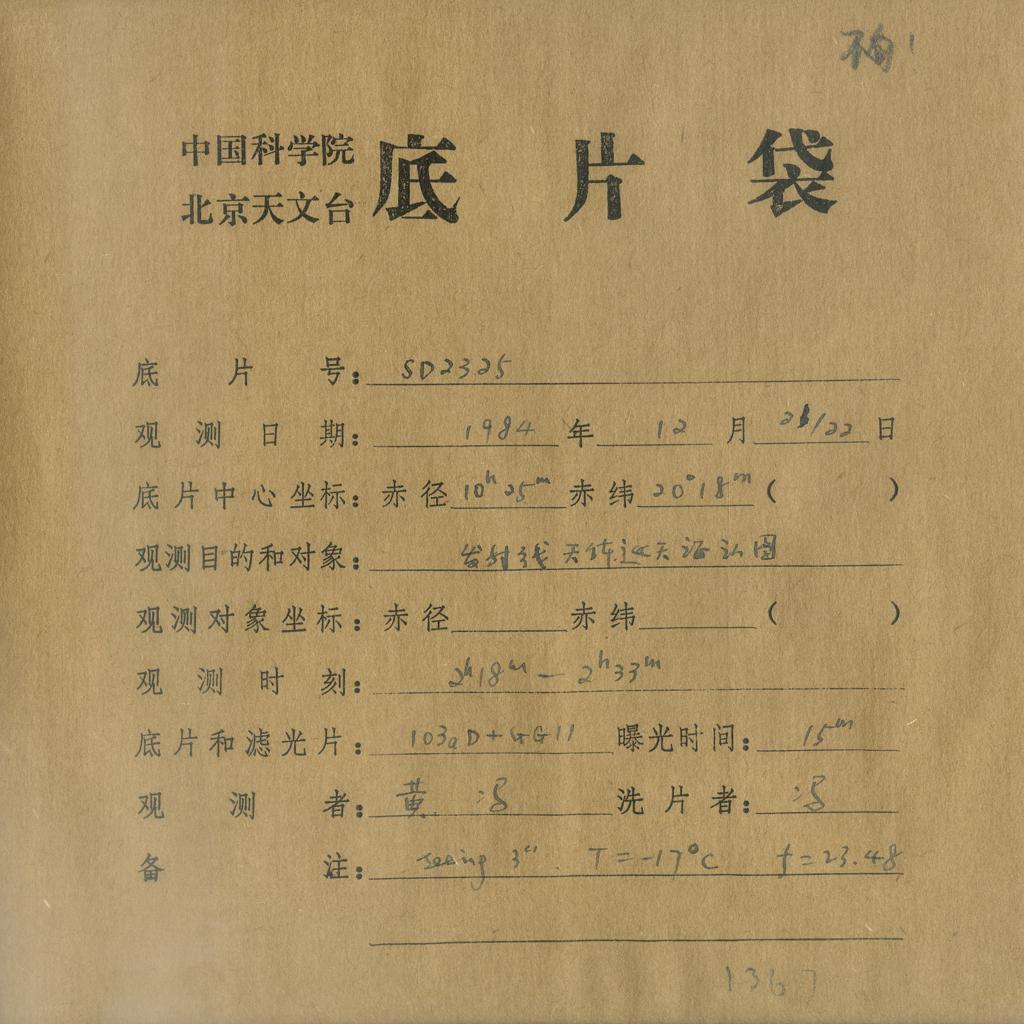 中国科学院
北京天文台
底片袋
底片号：SD2325
观测日期：1984年12月21/22日
底片中心坐标：赤径10h25m赤纬20°18m（ ）
观测目的和对象：发射线天体 天证认图
观测对象坐标：赤径 赤纬 （ ）
观测时刻：2h18m—2h33m
底片和滤光片：103aD+GG11 曝光时间：15m
观测者：黄 冯 洗片者：冯
备注：Seeing 3" T=-17°C f=23.48
1367